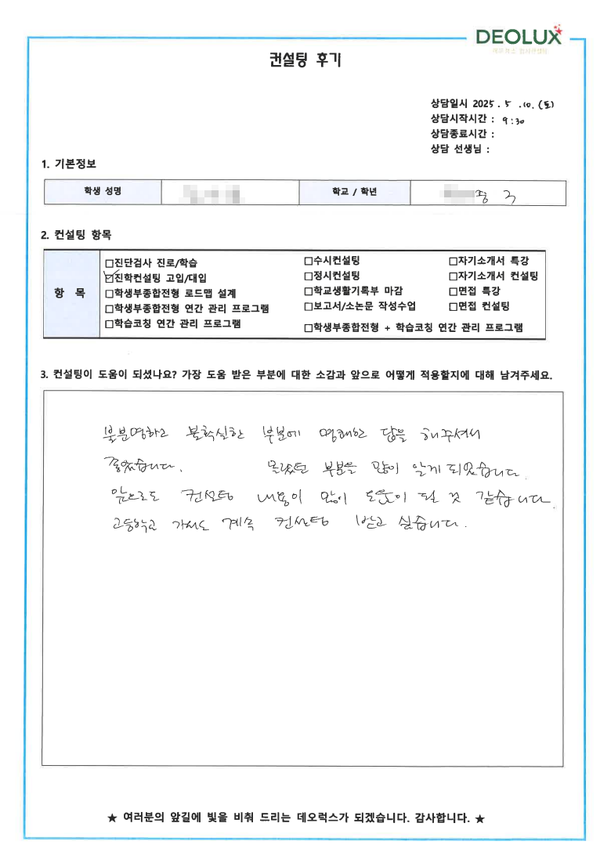 DEOLUX
컨설팅 후기
상담일시 2025. 5. 10. (토)
상담시작시간 : 9:30
상담종료시간 :
상담 선생님 :
1. 기본정보
학생 성명
학교 / 학년 중 3
2. 컨설팅 항목
항 목
□진단검사 진로/학습 □수시컨설팅 □자기소개서 특강
☑진학컨설팅 고입/대입 □정시컨설팅 □자기소개서 컨설팅
□학생부종합전형 로드맵 설계 □학교생활기록부 마감 □면접 특강
□학생부종합전형 연간 관리 프로그램 □보고서/소논문 작성수업 □면접 컨설팅
□학습코칭 연간 관리 프로그램 □학생부종합전형 + 학습코칭 연간 관리 프로그램
3. 컨설팅이 도움이 되셨나요? 가장 도움 받은 부분에 대한 소감과 앞으로 어떻게 적용할지에 대해 남겨주세요.
불분명하고 불확실한 부분에 명쾌한 답을 해주셔서
좋았습니다. 몰랐던 부분을 많이 알게 되었습니다.
앞으로도 컨설팅 내용이 많이 도움이 될 것 같습니다.
고등학교 가서도 계속 컨설팅 받고 싶습니다.
★ 여러분의 앞길에 빛을 비춰 드리는 데오럭스가 되겠습니다. 감사합니다. ★